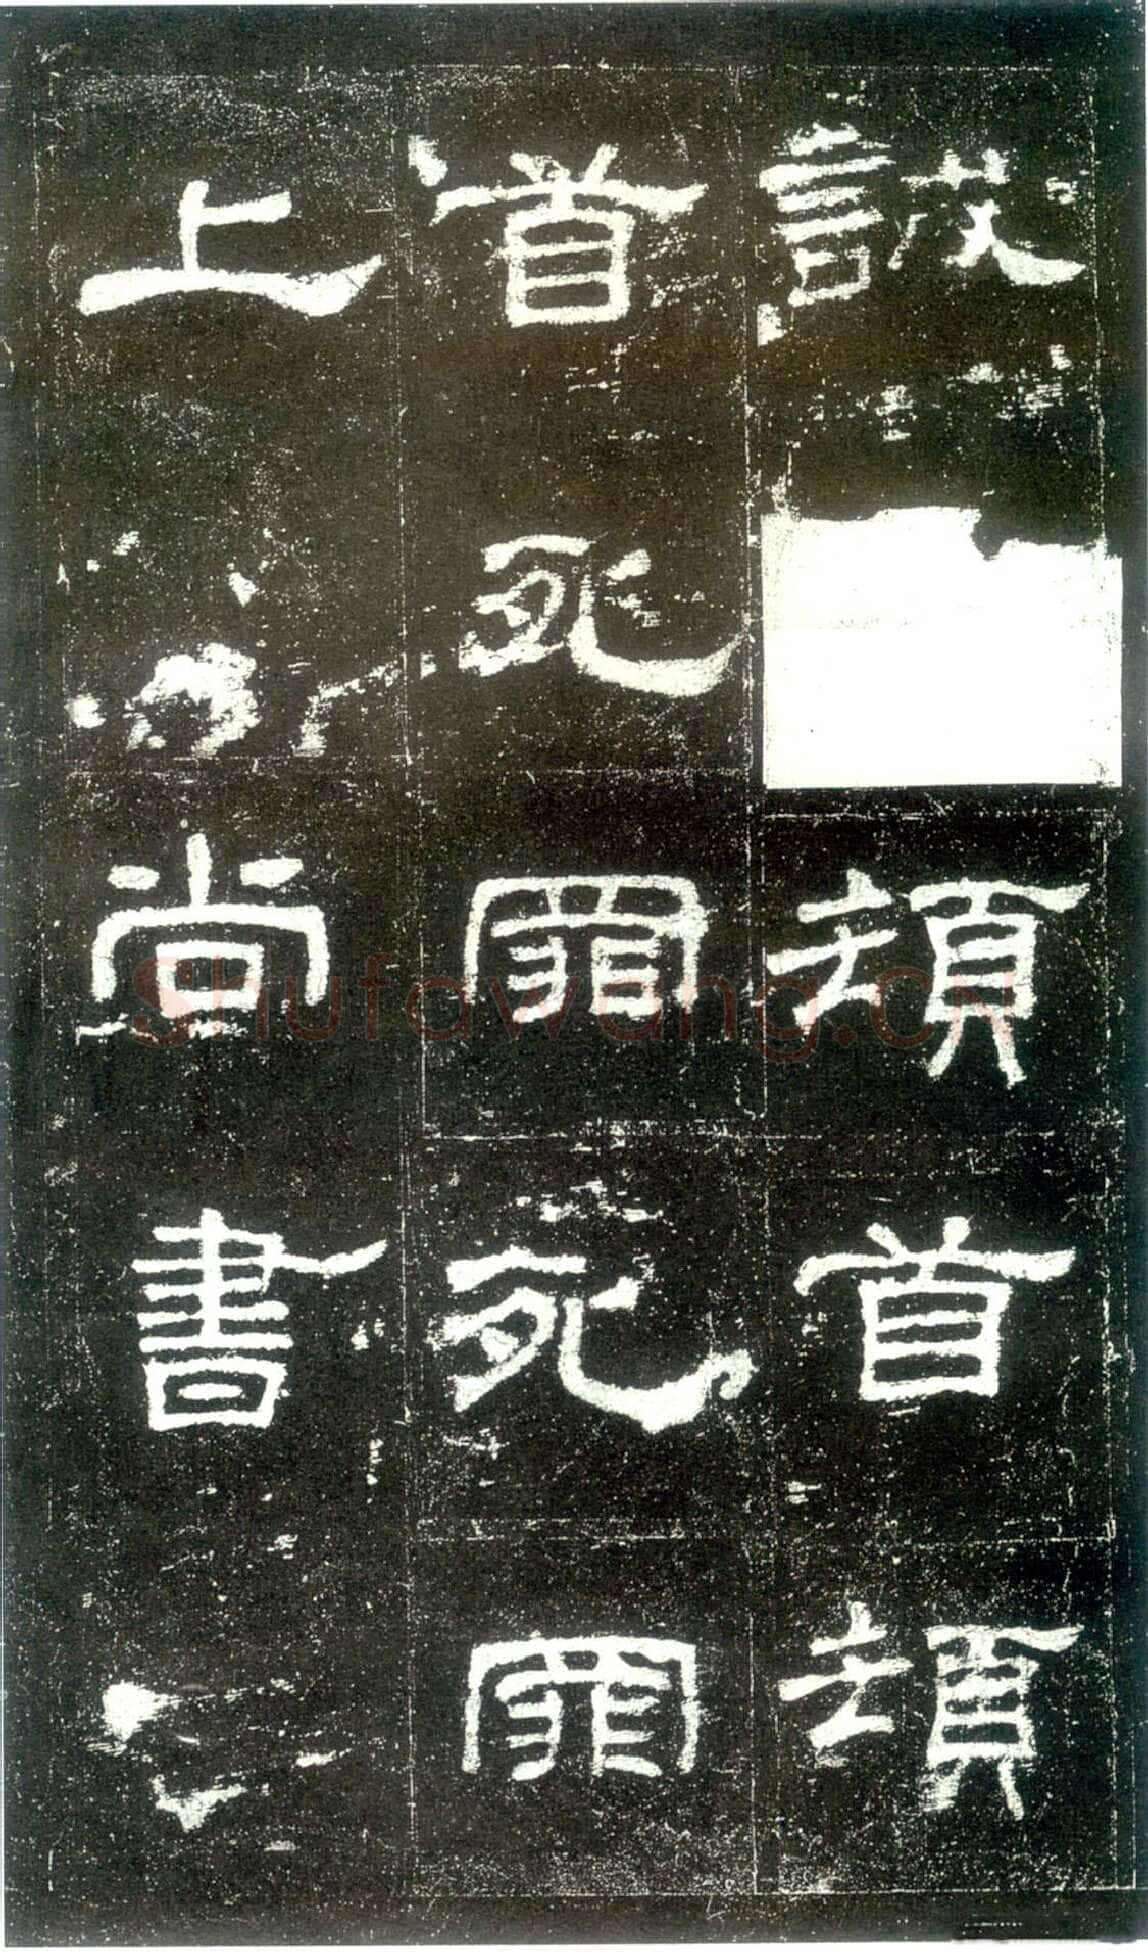 誠頓首頓
首死罪死罪
上尚書
Shufawang.CN